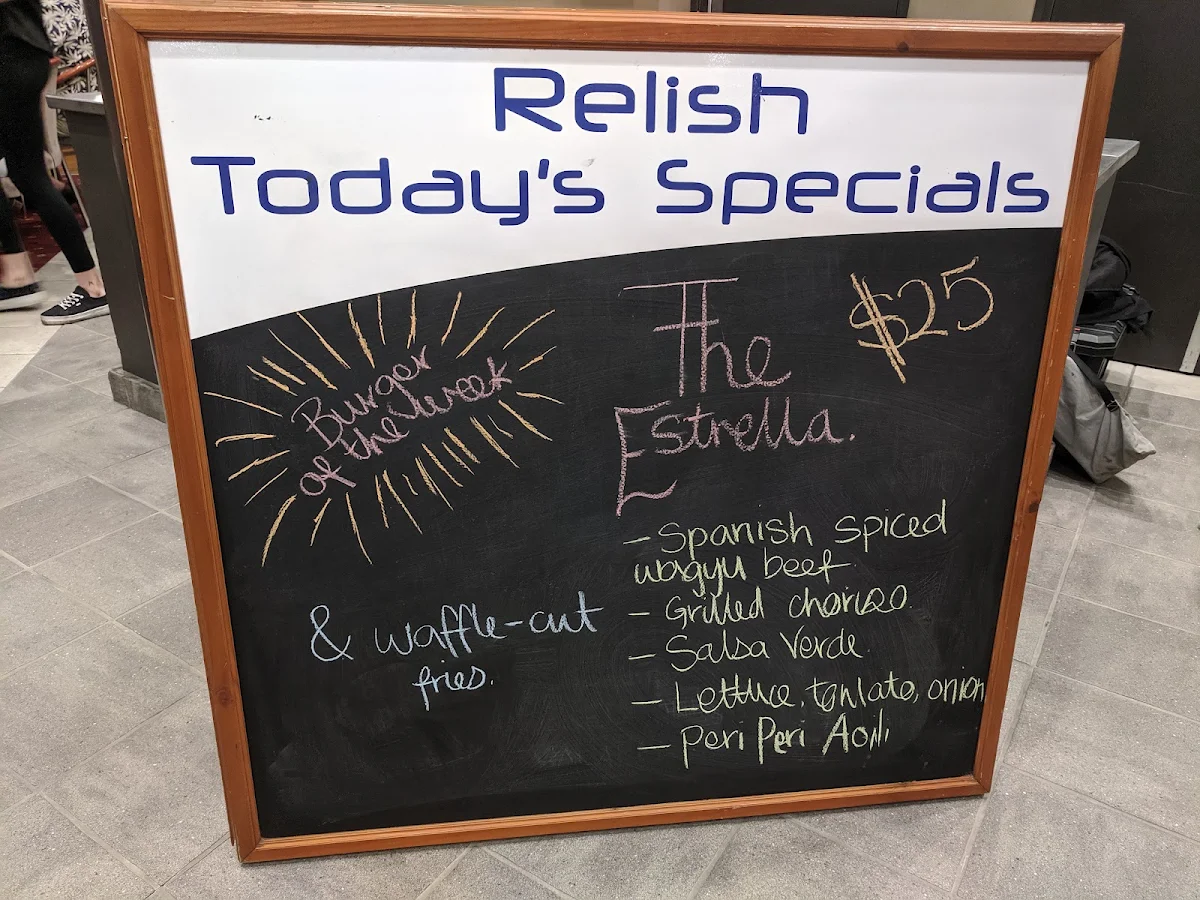 Relish
Today's Specials
Burger
of the week
The
Estrella.
$25
- Spanish spiced
wagyu beef
- Grilled chorizo
- Salsa Verde
- Lettuce, tomato, onion
- Peri Peri Aoili
& waffle-cut
fries.